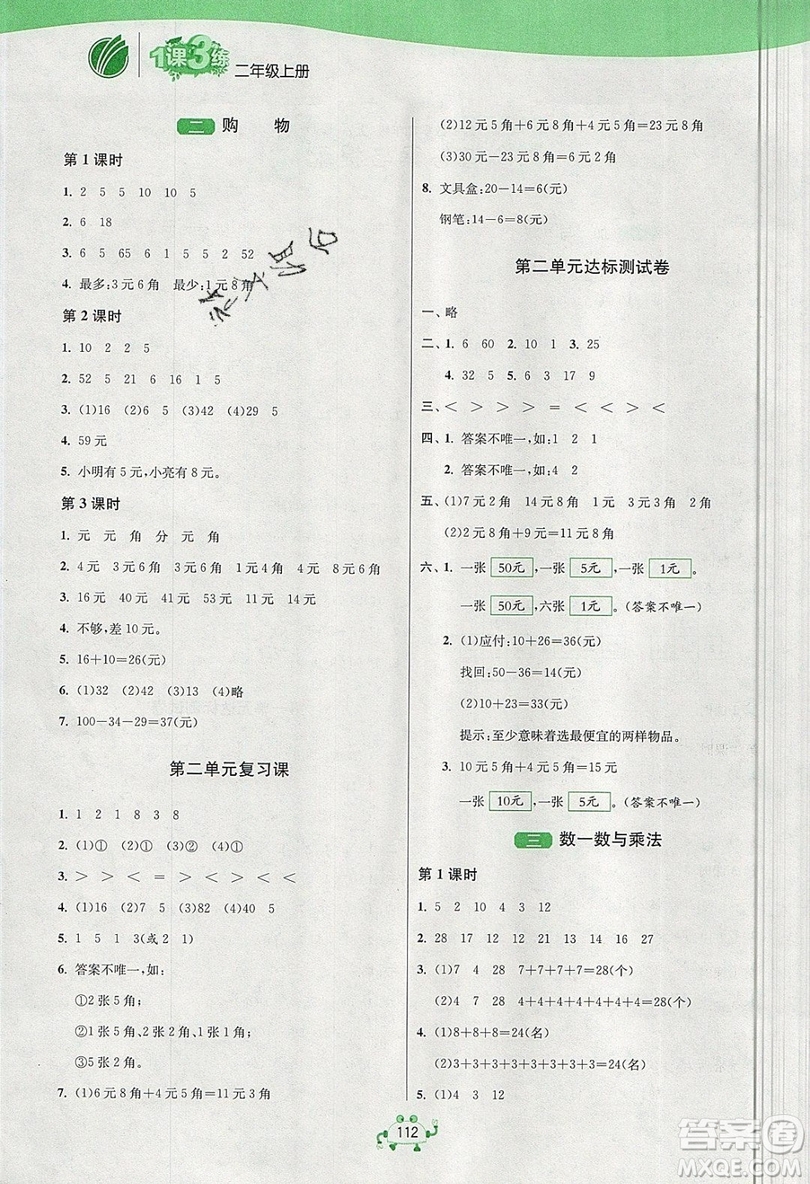 1课3练 二年级上册
二 购 物
第1课时
1. 2 5 5 10 10 5
2. 6 18
3. 6 5 65 61 6 5 5 2 52
4. 最多:3元6角 最少:1元8角
第2课时
1. 10 2 2 5
2. 52 5 21 6 16 5
3. (1)16 (2)6 5 (3)42 (4)29 5
4. 59元
5. 小明有5元,小亮有8元。
第3课时
1. 元 元 角 分 元 角
2. 4元 3元6角 4元8角 6元6角
3. 16元 40元 41元 53元 11元 14元
4. 不够,差10元。
5. 16+10=26(元)
6. (1)32 (2)42 (3)13 (4)略
7. 100-34-29=37(元)
第二单元复习课
1. 1 2 1 8 3 8
2. (1)① (2)① (3)② (4)①
3. > > < = > < > < <
4. (1)16 (2)7 (3)82 (4)40 5
5. 1 5 1 3(或2 1)
6. 答案不唯一,如:
①2张5角;
②1张5角,2张2角,1张1角;
③5张2角。
7. (1)6元8角+4元5角=11元3角
(2)12元5角+6元8角+4元5角=23元8角
(3)30元-23元8角=6元2角
8. 文具盒:20-14=6(元)
钢笔:14-6=8(元)
第二单元达标测试卷
一、略
二、1. 6 60 2. 10 1 3. 25
4. 32 5 5. 6 3 17 9
三、< > > > = < < > <
四、1. 答案不唯一,如:1 2 1
2. 答案不唯一,如:4 2
五、(1)7元2角 14元8角 1元 3元3角 8角
(2)2元8角+9元=11元8角
六、1. 一张 50元,一张 5元,一张 1元。
一张 50元,六张 1元。(答案不唯一)
2. (1)应付:10+26=36(元)
找回:50-36=14(元)
(2)10+23=33(元)
提示:至少意味着选最便宜的两样物品。
3. 10元5角+4元5角=15元
一张 10元,一张 5元。(答案不唯一)
三 数一数与乘法
第1课时
1. 5 2 10 4 3 12
2. 28 17 15 12 18 14 16 27
3. (1)7 4 28 7+7+7+7=28(个)
(2)4 7 28 4+4+4+4+4+4+4=28(个)
4. (1)8+8+8=24(名)
(2)3+3+3+3+3+3+3+3=24(名)
5. (1)4 3 12
112
答案圈
MXQE.COM